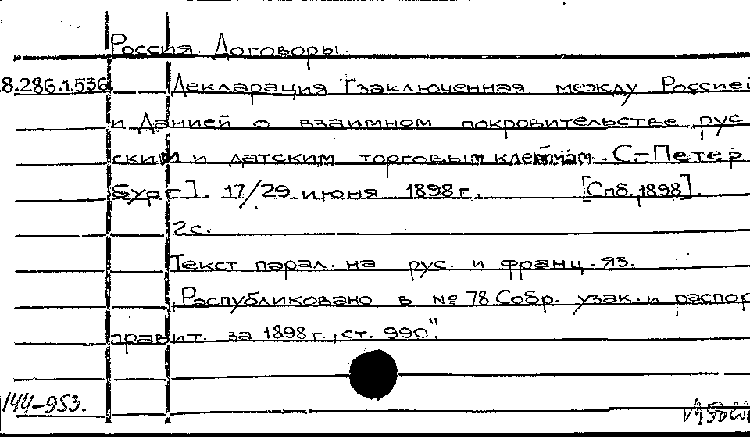 Россия. Договоры.
8.286.1.536 Декларация [заключенная между Россией
и Данией о взаимном покровительстве рус
ским и датским торговым клеймам. С-Петер
бург]. 17/29 июня 1898 г. [Спб, 1898].
2 с.
Текст парал. на рус. и франц. яз.
"Распубликовано в № 78 Собр. узак. и распор
правит. за 1898 г., ст. 990".
144-953.